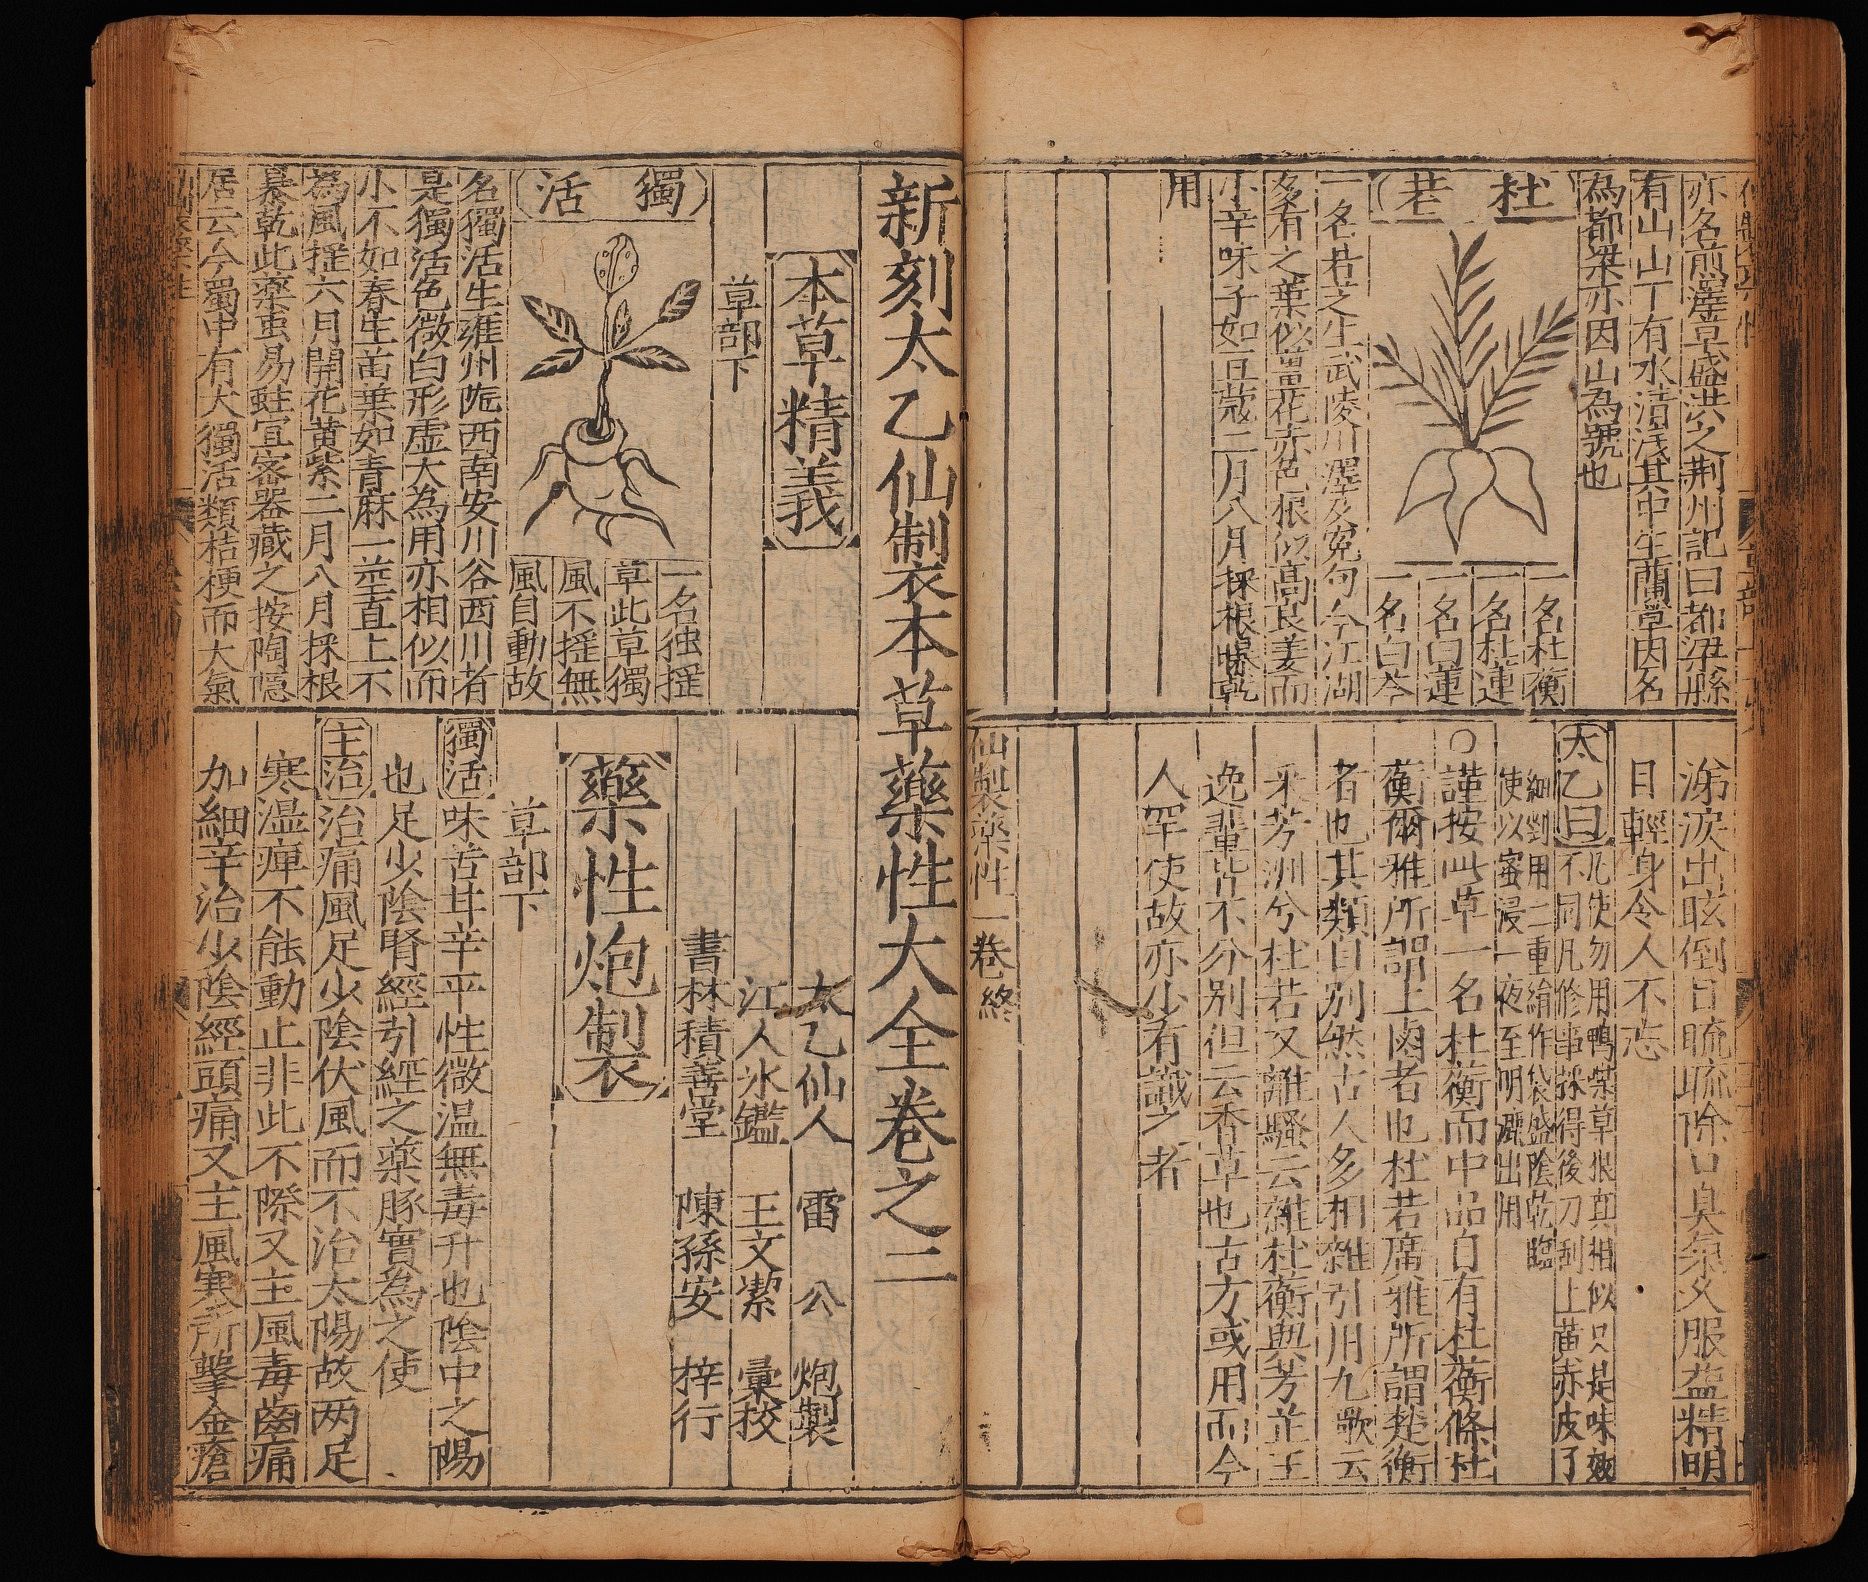 亦名煎澤草盛洪之荆州記曰都梁縣
有山山下有水清浅其中生蘭草因名
為都梁亦因山為號也
杜若
一名杜蘅
一名杜蓮
一名白蓮
一名白芩
一名若芝生武陵川澤及冤句今江湖
多有之葉似薑花赤色根似高良姜而
小辛味子如豆蔻二月八月採根曝乾
用
涕淚出眩倒目䀮䀮除口臭氣久服益精明
目輕身令人不忘
太乙曰
凡使勿用鴨喋草根真相似只是味效
不同凡修事採得後刀刮上黄赤皮了
細剉用二重絹作袋盛陰乾臨
使以蜜浸一夜至明漉出用
○謹按此草一名杜蘅而中品自有杜蘅條杜
蘅爾雅所謂土鹵者也杜若廣雅所謂楚蘅
者也其類自別然古人多相雜引用九歌云
采芳洲兮杜若又離騷云雜杜蘅與芳芷王
逸輩皆不分別但云香草也古方或用而今
人罕使故亦少有識之者
仙製藥性一卷終
新刻太乙仙制衣本草藥性大全卷之二
本草精義
草部下
獨活
一名独摇
草此草獨
風不摇無
風自動故
名獨活生雍州陇西南安川谷西川者
是獨活色微白形虚大為用亦相似而
小不如春生苗葉如青麻一莖直上不
為風摇六月開花黄紫二月八月採根
暴乾此藥虫易蛀宜密器藏之按陶隱
居云今蜀中有大獨活類桔梗而大氣
太乙仙人 雷公 炮製
江人氷鑑 王文潔 彙校
書林積善堂 陳孫安 梓行
藥性炮製
草部下
獨活 味苦甘辛平性微温無毒升也陰中之陽
也足少陰腎經引經之藥豚實為之使
主治 治痛風足少陰伏風而不治太陽故两足
寒温痺不能動止非此不際又主風毒齒痛
加細辛治少陰經頭痛又主風寒所擊金瘡